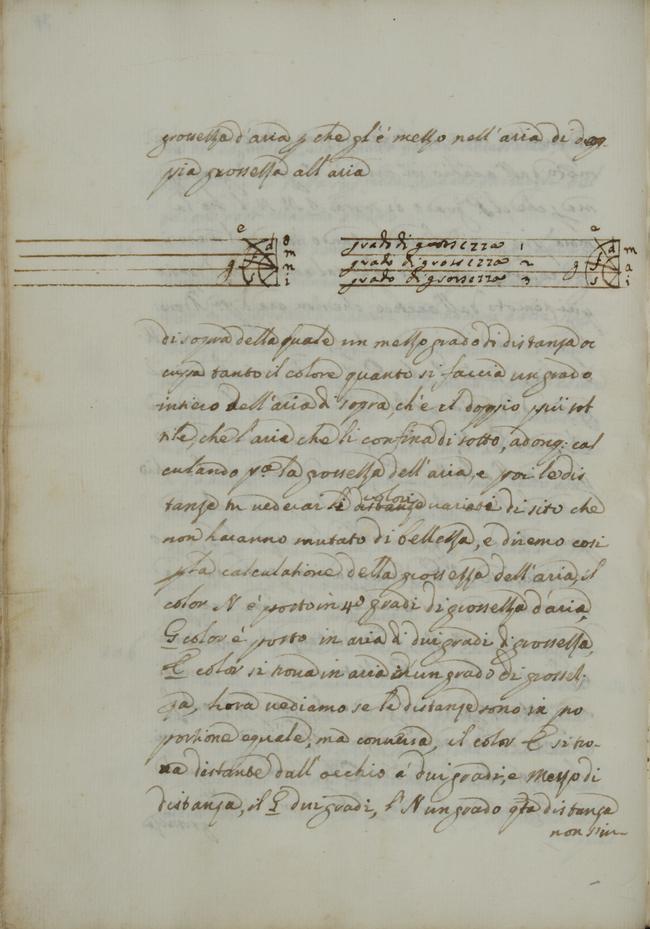 grossezza d'aria p che gl'è messo nell'aria di dop
pia grossezza all'aria
e a o
m
g f n
s i
grado di grossezza 1
grado di grossezza 2
grado di grossezza 3
a a m
g f a
s i
di sopra della quale un mezzo grado di distanza oc
cupa tanto il colore quanto si faccia un grado
intiero dell'aria di sopra, ch'è il doppio più sot
tile, che l'aria che li confina di sotto, adonq: cal
culando p.a la grossezza dell'aria, e poi le dis
tanze tu vederai li colori variati di sito che
non haranno mutato di bellezza, e diremo così
p la calculatione della grossezza dell'aria, il
color N è posto in 4o gradi di grossezza d'aria,
G color è posto in aria di dui gradi di grossezza,
E color si trova in aria di un grado di grossez:
za, hora vediamo se le distanze sono in po
portione equale, ma conversa, il color E si tro-
va distante dall'occhio a dui gradi, e mezzo di
distanza, il G dui gradi, l'N un grado qta distanza
non